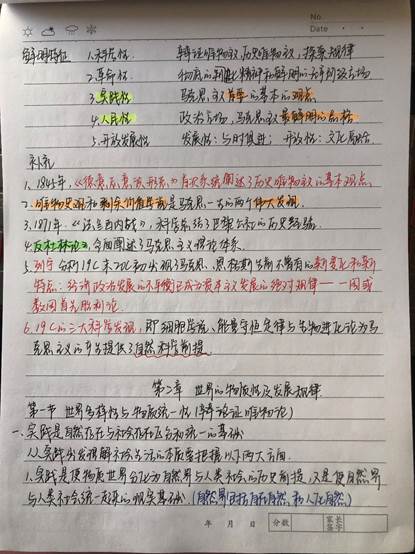 No.
Date
鲜明特征 1.科学性 辩证唯物主义,历史唯物主义,探索规律
2.革命性 彻底的批判精神和鲜明的无产阶级立场
3.实践性 马克思主义首要的基本的观点
4.人民性 政治立场,马克思主义最鲜明的品格
5.开放发展性 发展性:与时俱进; 开放性:文化融合
补充
1、1845年,《德意志意识形态》首次系统阐述了历史唯物主义的基本观点。
2、唯物史观和剩余价值学说是马克思一生的两个伟大发现
3、1871年《法兰西内战》,科学总结了巴黎公社的历史经验
4.反杜林论》,全面阐述了马克思主义理论体系
5.列宁分析19C末20C初出现了马克思、恩格斯生前不曾有的新变化和新
特点:经济政治发展的不平衡已成为资本主义发展的绝对规律——一国或
数国首先胜利论
6、19C的三大科学发现,即细胞学说、能量守恒定律与生物进化论为马
克思主义的产生提供了自然科学前提
第二章 世界的物质性及发展规律
第一节 世界多样性与物质统一性(辩证唯物论)
一、实践是自然存在与社会存在区分和统一的基础
从实践出发理解社会生活的本质要把握以下两大方面
1.实践是使物质世界分化为自然界与人类社会的历史前提,又是使自然界
与人类社会统一起来的现实基础 (自然界包括自在自然和人化自然)
年 月 日 分数 家长签字